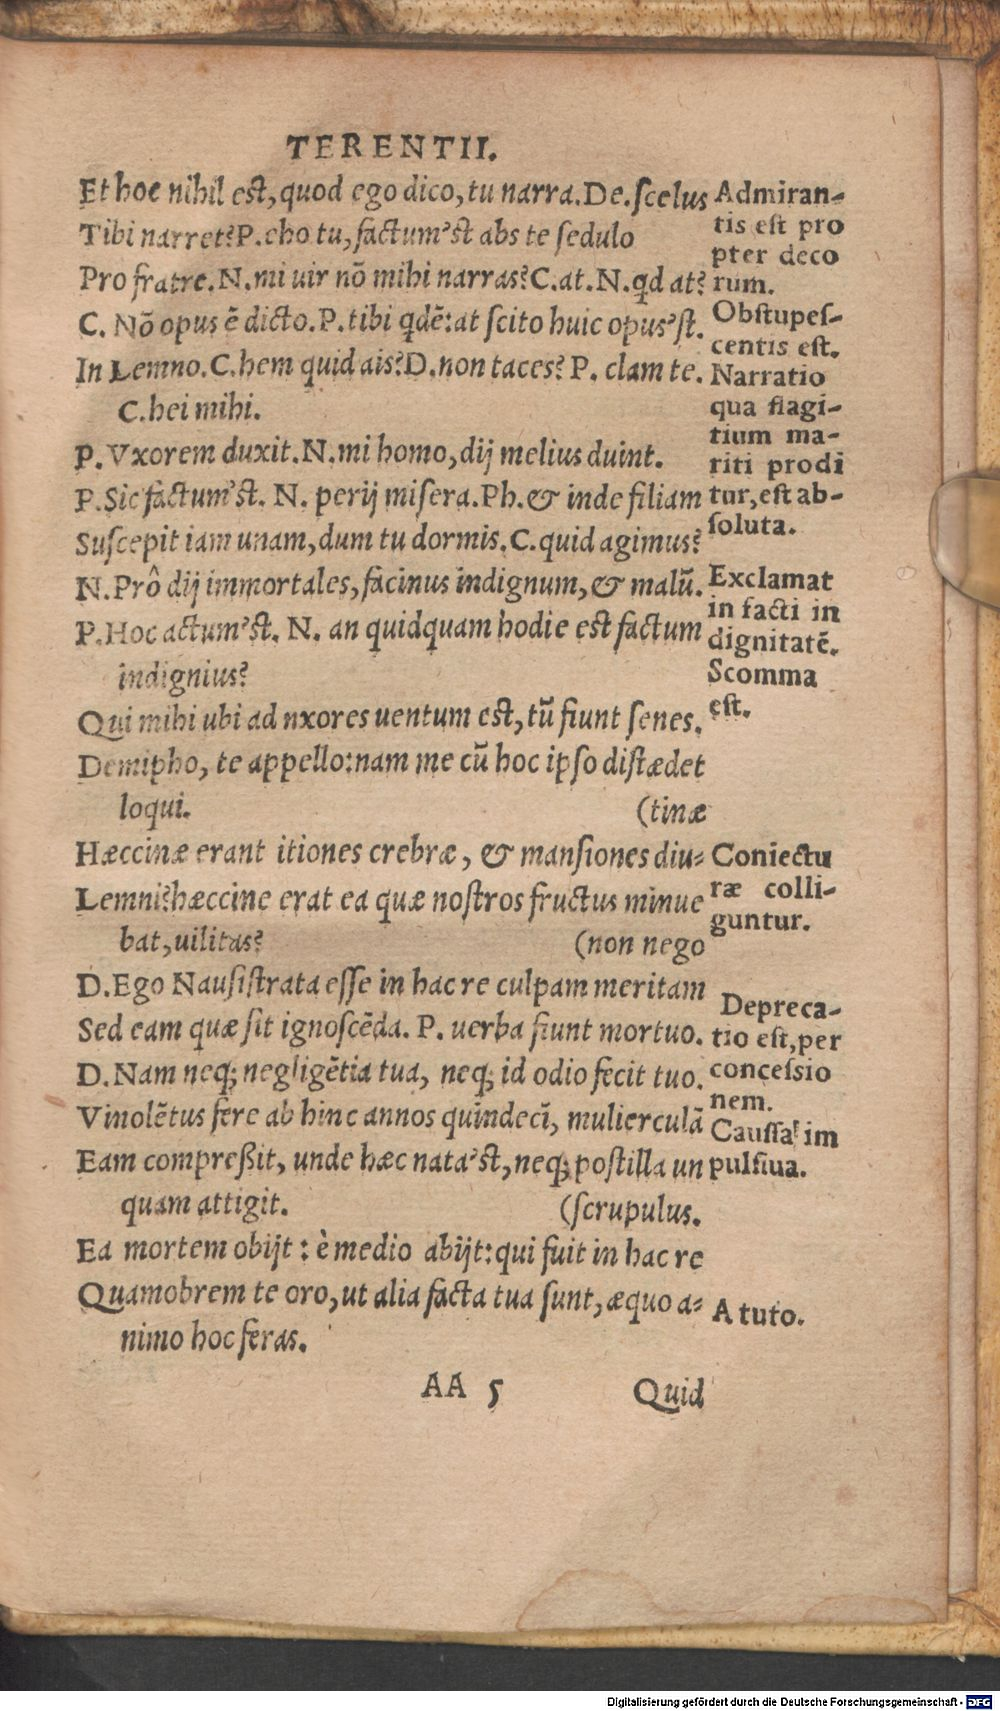 TERENTII.
Et hoc nihil est, quod ego dico, tu narra. De. scelus
Tibi narret? P. eho tu, factum'st abs te sedulo
Pro fratre. N. mi uir nō mihi narras? C. at. N. qd at?
C. Nō opus ē dicto. P. tibi qdē: at scito huic opus'st.
In Lemno. C. hem quid ais? D. non taces? P. clam te.
C. hei mihi.
P. Vxorem duxit. N. mi homo, dij melius duint.
P. Sic factum'st. N. perij misera. Ph. & inde filiam
Suscepit iam unam, dum tu dormis. C. quid agimus?
N. Prô dij immortales, facinus indignum, & malū.
P. Hoc actum'st. N. an quidquam hodie est factum
indignius?
Qui mihi ubi ad nxores uentum est, tū fiunt senes.
Demipho, te appello: nam me cū hoc ipso distædet
loqui. (tinæ
Hæccinæ erant itiones crebræ, & mansiones diu-
Lemni? hæccine erat ea quæ nostros fructus minue
bat, uilitas? (non nego
D. Ego Nausistrata esse in hac re culpam meritam
Sed eam quæ sit ignoscēda. P. uerba fiunt mortuo.
D. Nam neq; negligētia tua, neq; id odio fecit tuo.
Vinolētus fere ab hinc annos quindecī, mulierculā
Eam compreßit, unde hæc nata'st, neq; postilla un
quam attigit. (scrupulus.
Ea mortem obijt: è medio abijt: qui fuit in hac re
Quamobrem te oro, ut alia facta tua sunt, æquo a-
nimo hoc feras.
Admiran-
tis est pro
pter deco
rum.
Obstupes-
centis est.
Narratio
qua flagi-
tium ma-
riti prodi
tur, est ab-
soluta.
Exclamat
in facti in
dignitatē.
Scomma
est.
Coniectu
ræ colli-
guntur.
Depreca-
tio est, per
concessio
nem.
Caussa im
pulsiua.
A tuto.
AA 5 Quid
Digitalisierung gefördert durch die Deutsche Forschungsgemeinschaft - DFG